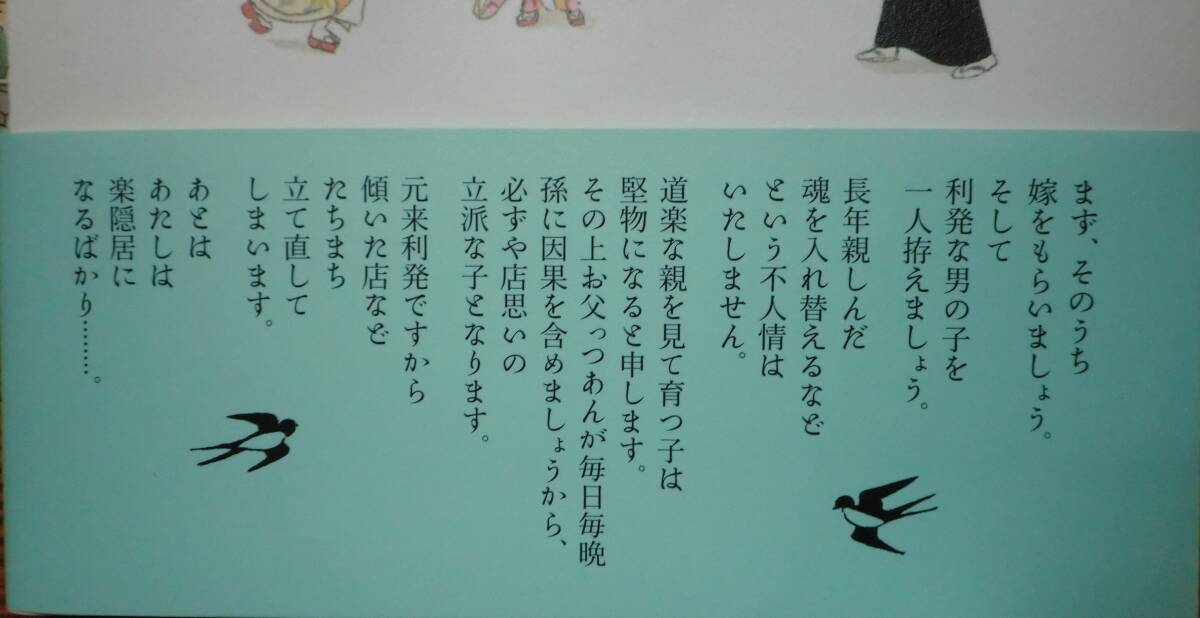 まず、そのうち
嫁をもらいましょう。
そして
利発な男の子を
一人拵えましょう。
長年親しんだ
魂を入れ替えるなど
という不人情は
いたしません。
道楽な親を見て育つ子は
堅物になると申します。
その上お父っつあんが毎日毎晩
孫に因果を含めましょうから、
必ずや店思いの
立派な子となります。
元来利発ですから
傾いた店など
たちまち
立て直して
しまいます。
あとは
あたしは
楽隠居に
なるばかり………。